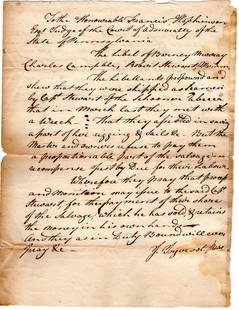 To the Honourable Francis Hopkinson
Esqr Judge of the Court of admiralty of the
State of Pennsylvania
The Libel of Murray
Charles Campble, Robert Stewart
The Libellants
shew that they were shipped as
by Capt Stewart of the Schooner
that in a they met with
a Wreck that they assisted in saving
a part of her rigging & Sails &c. But the
Master and owners refuse to pay them
a proportionable part of the salvage, a
recompense Justly Due for their Labour
Wherefore they pray that process
and Monition may issue to the said Capt
Stewart for the payment of their share
of the Salvage, which he has sold, & retains
the money in his own hands
And they as in Duty Bound will ever
pray &c
J Ingersol,